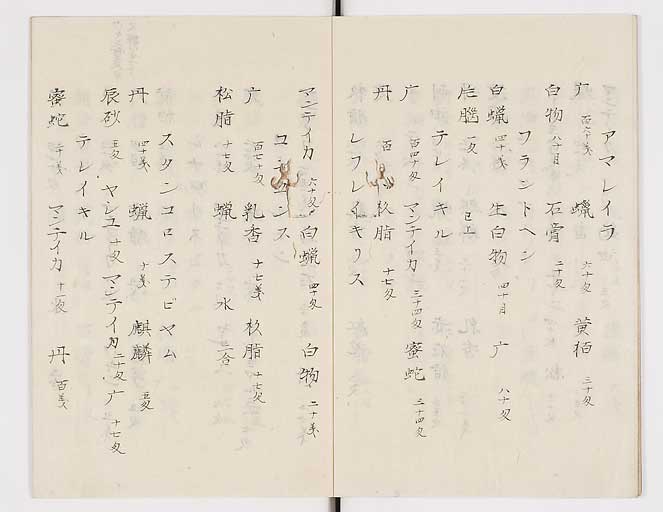 アマレイラ
广 百六十戔 蠟 六十匁 黄柏 三十匁
白物 八十目 石膏 二十匁
フランドヘン
白蠟 四十戔 生白物 四十目 广 八十匁
片脳 一匁 已上
テレイキル
广 百四十匁 マンテイカ 三十四匁 蜜蛇 三十四匁
丹 百 杉脂 十七匁
レフレイキリス
マンテイカ 六十匁 白蠟 四十匁 白物 二十戔
コンスン
广 百七十匁 乳香 十七戔 杉脂 十七匁
松脂 十七匁 蠟 水 二合
スタンコロステビヤム
丹 四十戔 蠟 十戔 麒麟 五匁
辰砂 五匁 ヤシユ 十匁 マンテイカ 二十匁 广 十七匁
テレイキル
蜜蛇 マンテイカ 丹 百戔